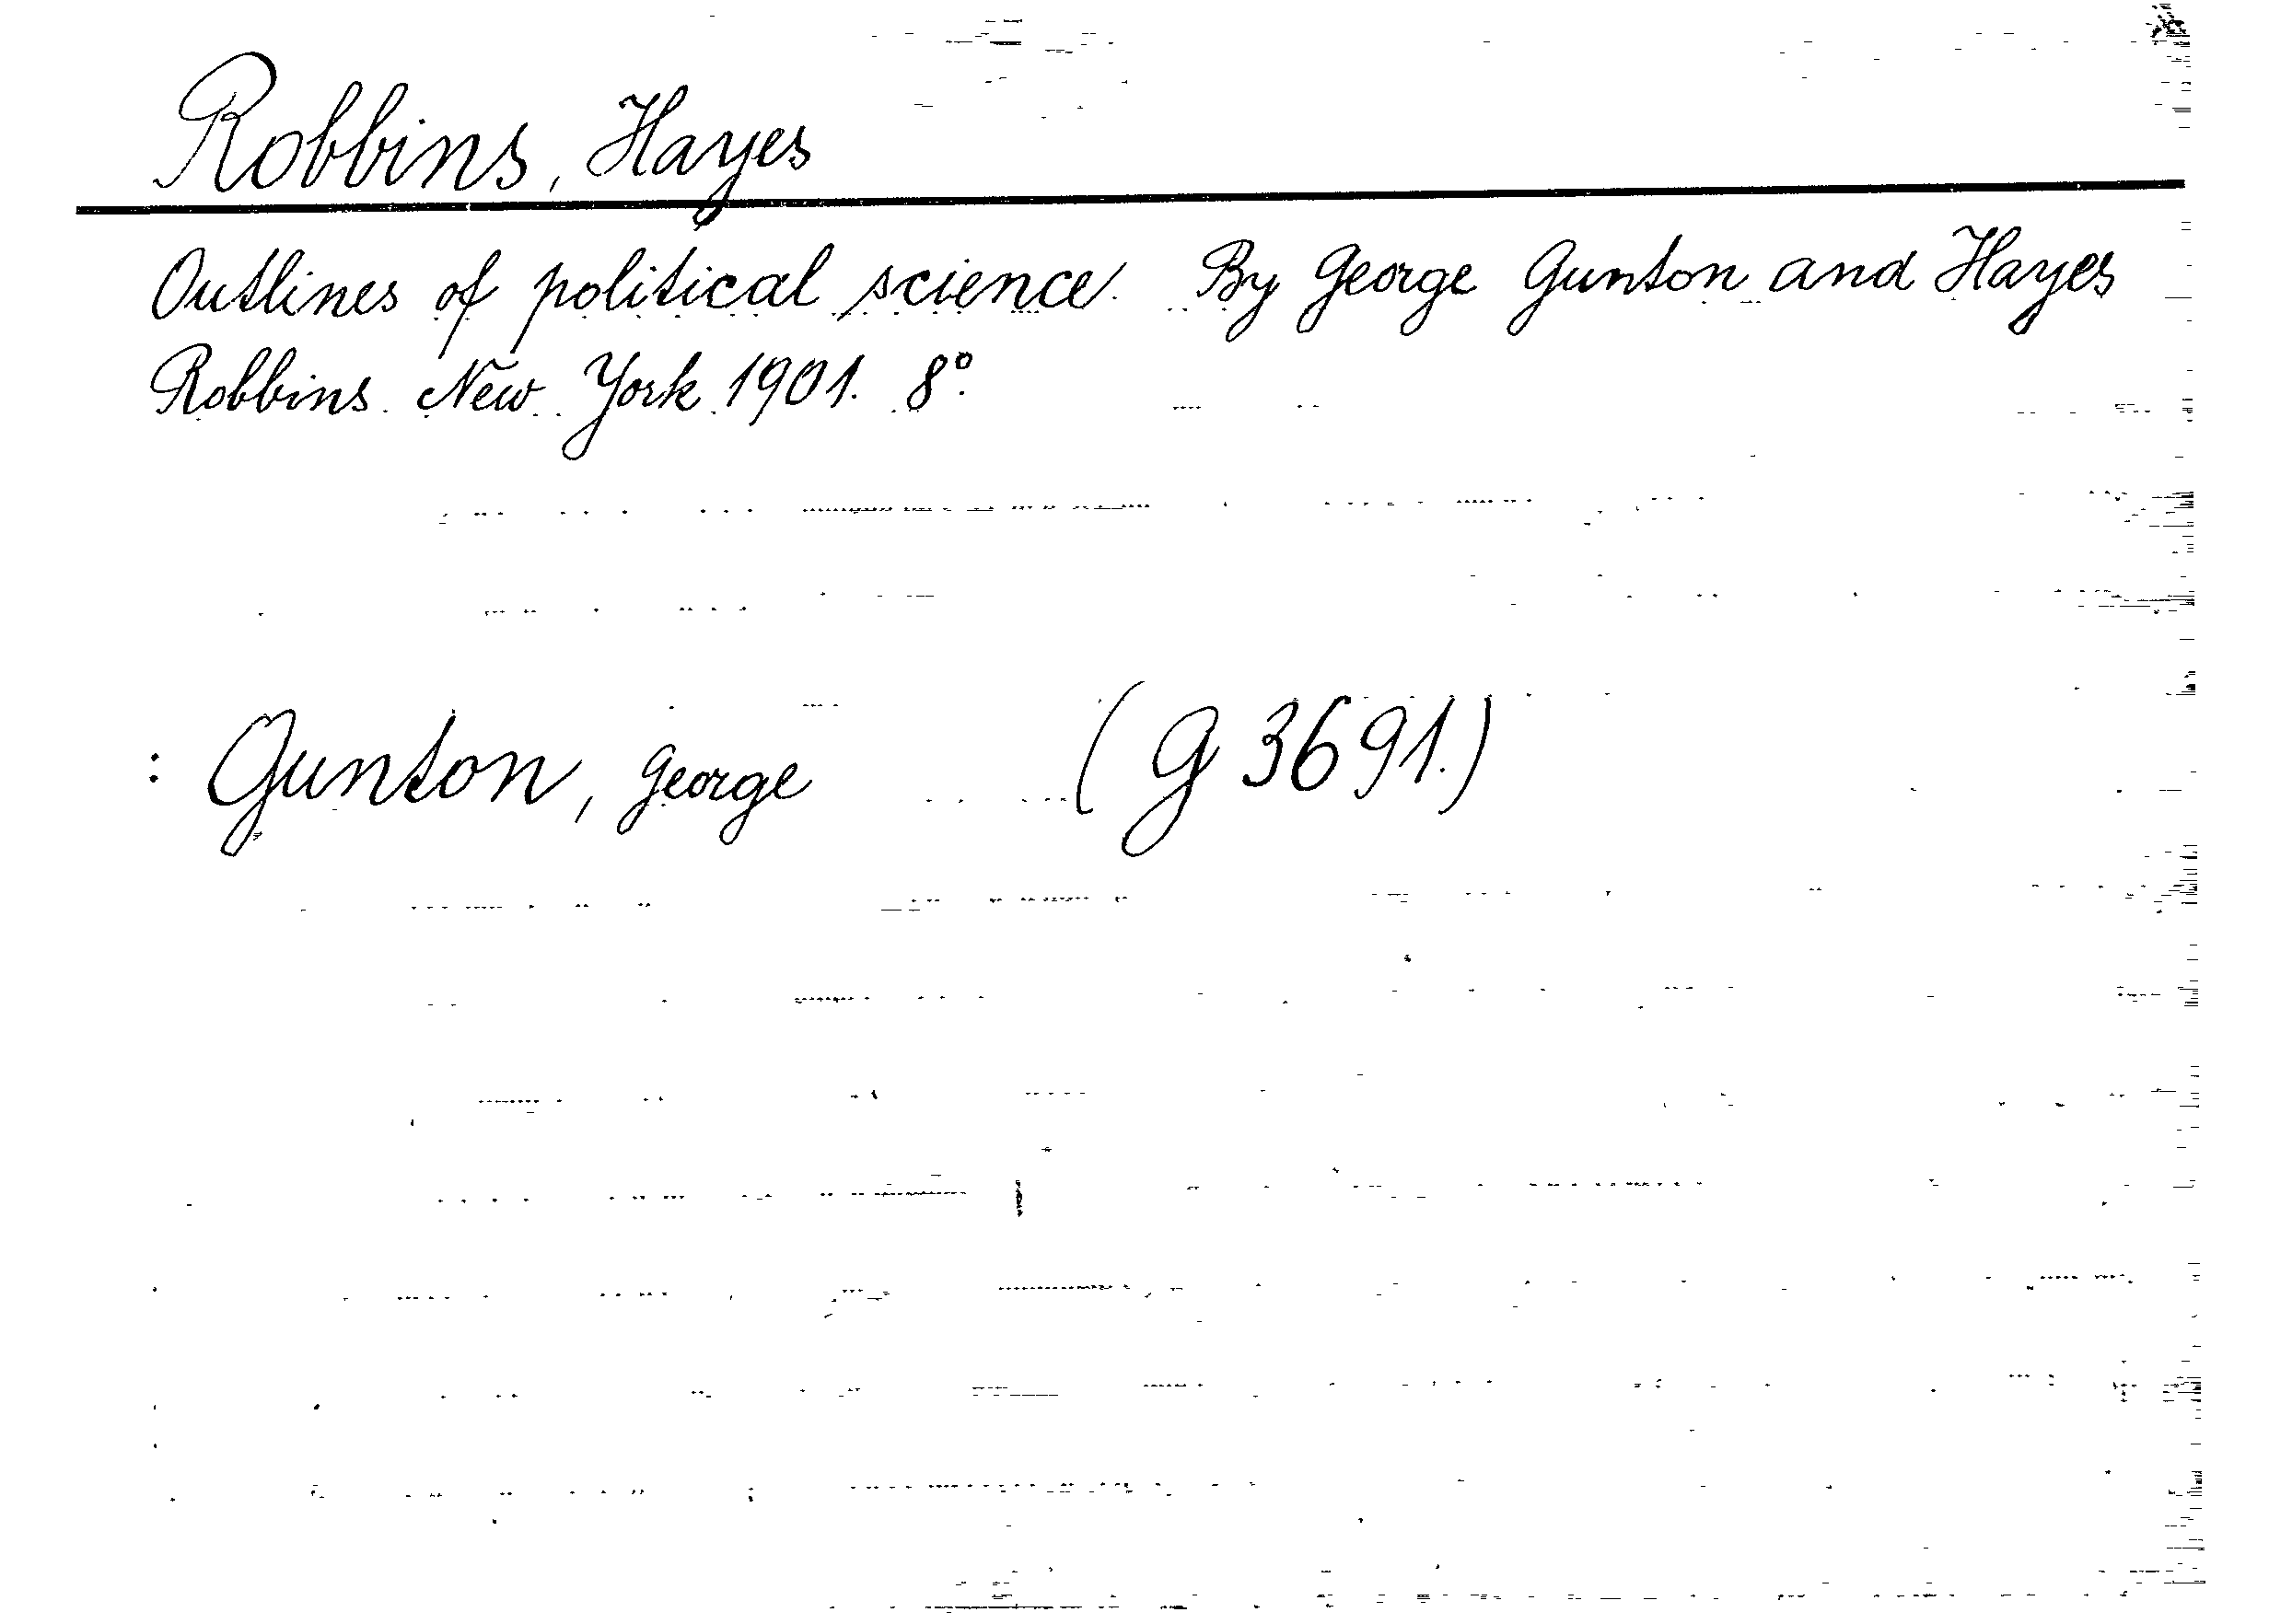 Robbins, Hayes
Outlines of political science. By George Gunton and Hayes
Robbins. New York 1901. 8°.
: Gunton, George (G 3691.)